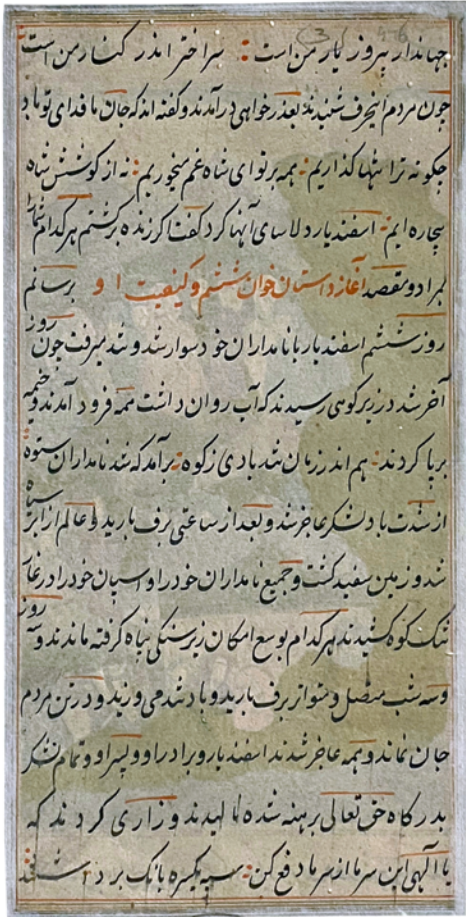 جهاندار پیروز یار من است : سر اختر اندر کنار من است
چون مردم اینحرف شنیدند بعذر خواهی درآمدند و گفته اند که جان ما فدای تو ماد
چگونه ترا تنها گذاریم : همه بر تو ای شاه غم میخوریم : نه از کوشش شاه
بیچاره ایم : اسفندیار دلاسای آنها کرد گفت اگر زنده برگشتم هر کدام شما را
بمراد و مقصد آغاز داستان خوان ششم و کیفیت او برسانم
روز ششم اسفندیار با نامداران خود سوار شد و تند میرفت چون روز
آخر شد در زیر کوهی رسیدند که آب روان داشت همه فرود آمدند و خیمه
برپا کردند : هم اندر زمان تند بادی ز کوه : برآمد که شد نامداران ستوه
از شدت باد لشکر عاجز شد و بعد از ساعتی برف بارید و عالم از ابر سیاه
شد و زمین سفید گشت و جمیع نامداران خود را و اسپان خود را در غار
تنگ کوه کشیدند هر کدام بوسع امکان زیر سنگی پناه گرفته ماندند و سه روز
و سه شب متصل و متواتر برف بارید و باد تند می وزید و در تن مردم
جان نماند و همه عاجز شدند اسفندیار و برادر او و پسر او و تمام لشکر
بدرگاه حق تعالی برهنه شده نالیدند و زاری کردند که
یا الهی این سرما از سر ما دفع کن : سپه یکسره بانگ برداشتند